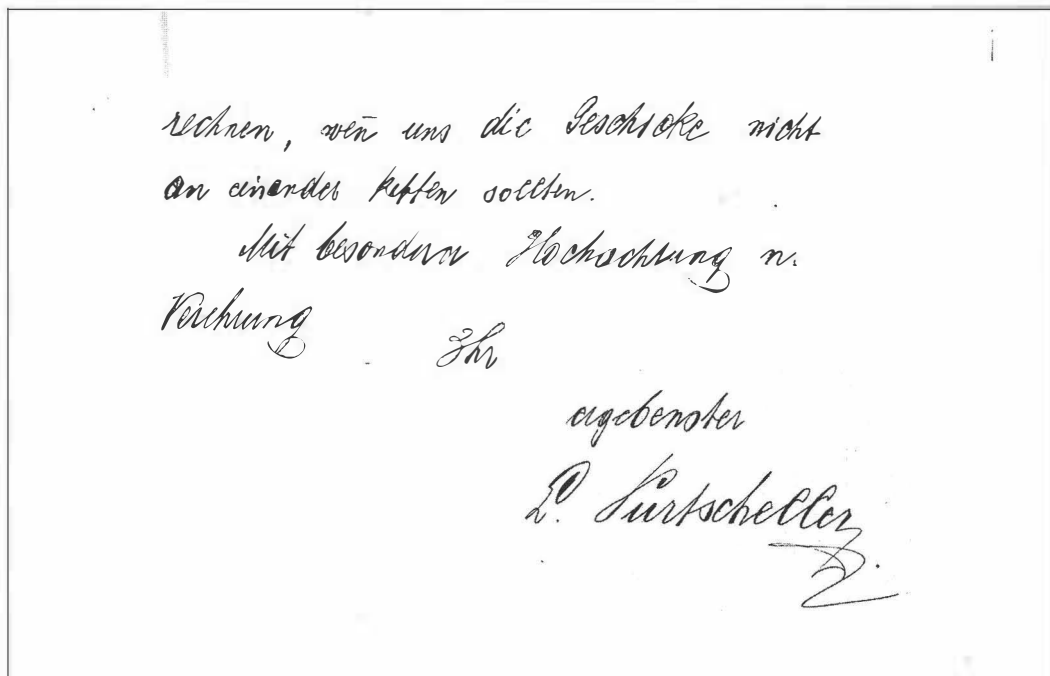 rechnen, wen̄ uns die Geschicke nicht
an einander ketten sollten.
Mit besonderer Hochachtung u.
Verehrung
Ihr
ergebenster
L. Purtscheller